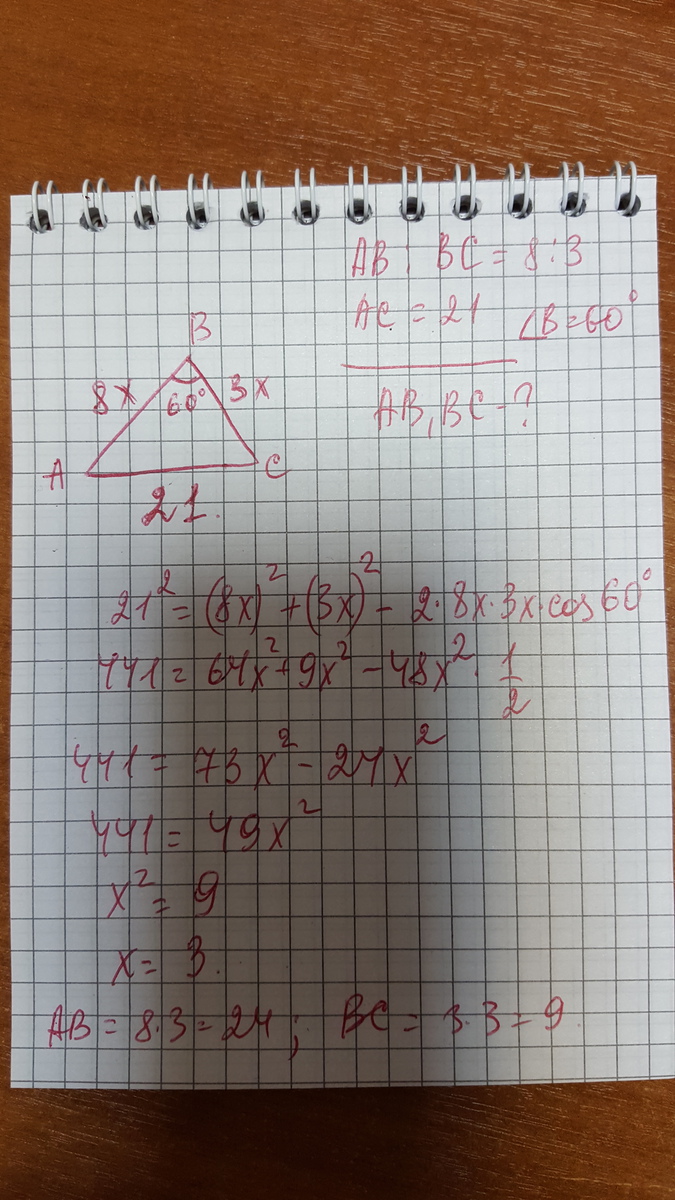 AB : BC = 8 : 3
AC = 21 ∠B = 60°
AB, BC - ?
B
8x 60° 3x
A C
21.
21² = (8x)² + (3x)² - 2·8x·3x·cos 60°
441 = 64x² + 9x² - 48x² · 1/2
441 = 73x² - 24x²
441 = 49x²
x² = 9
x = 3.
AB = 8·3 = 24 ; BC = 3·3 = 9.